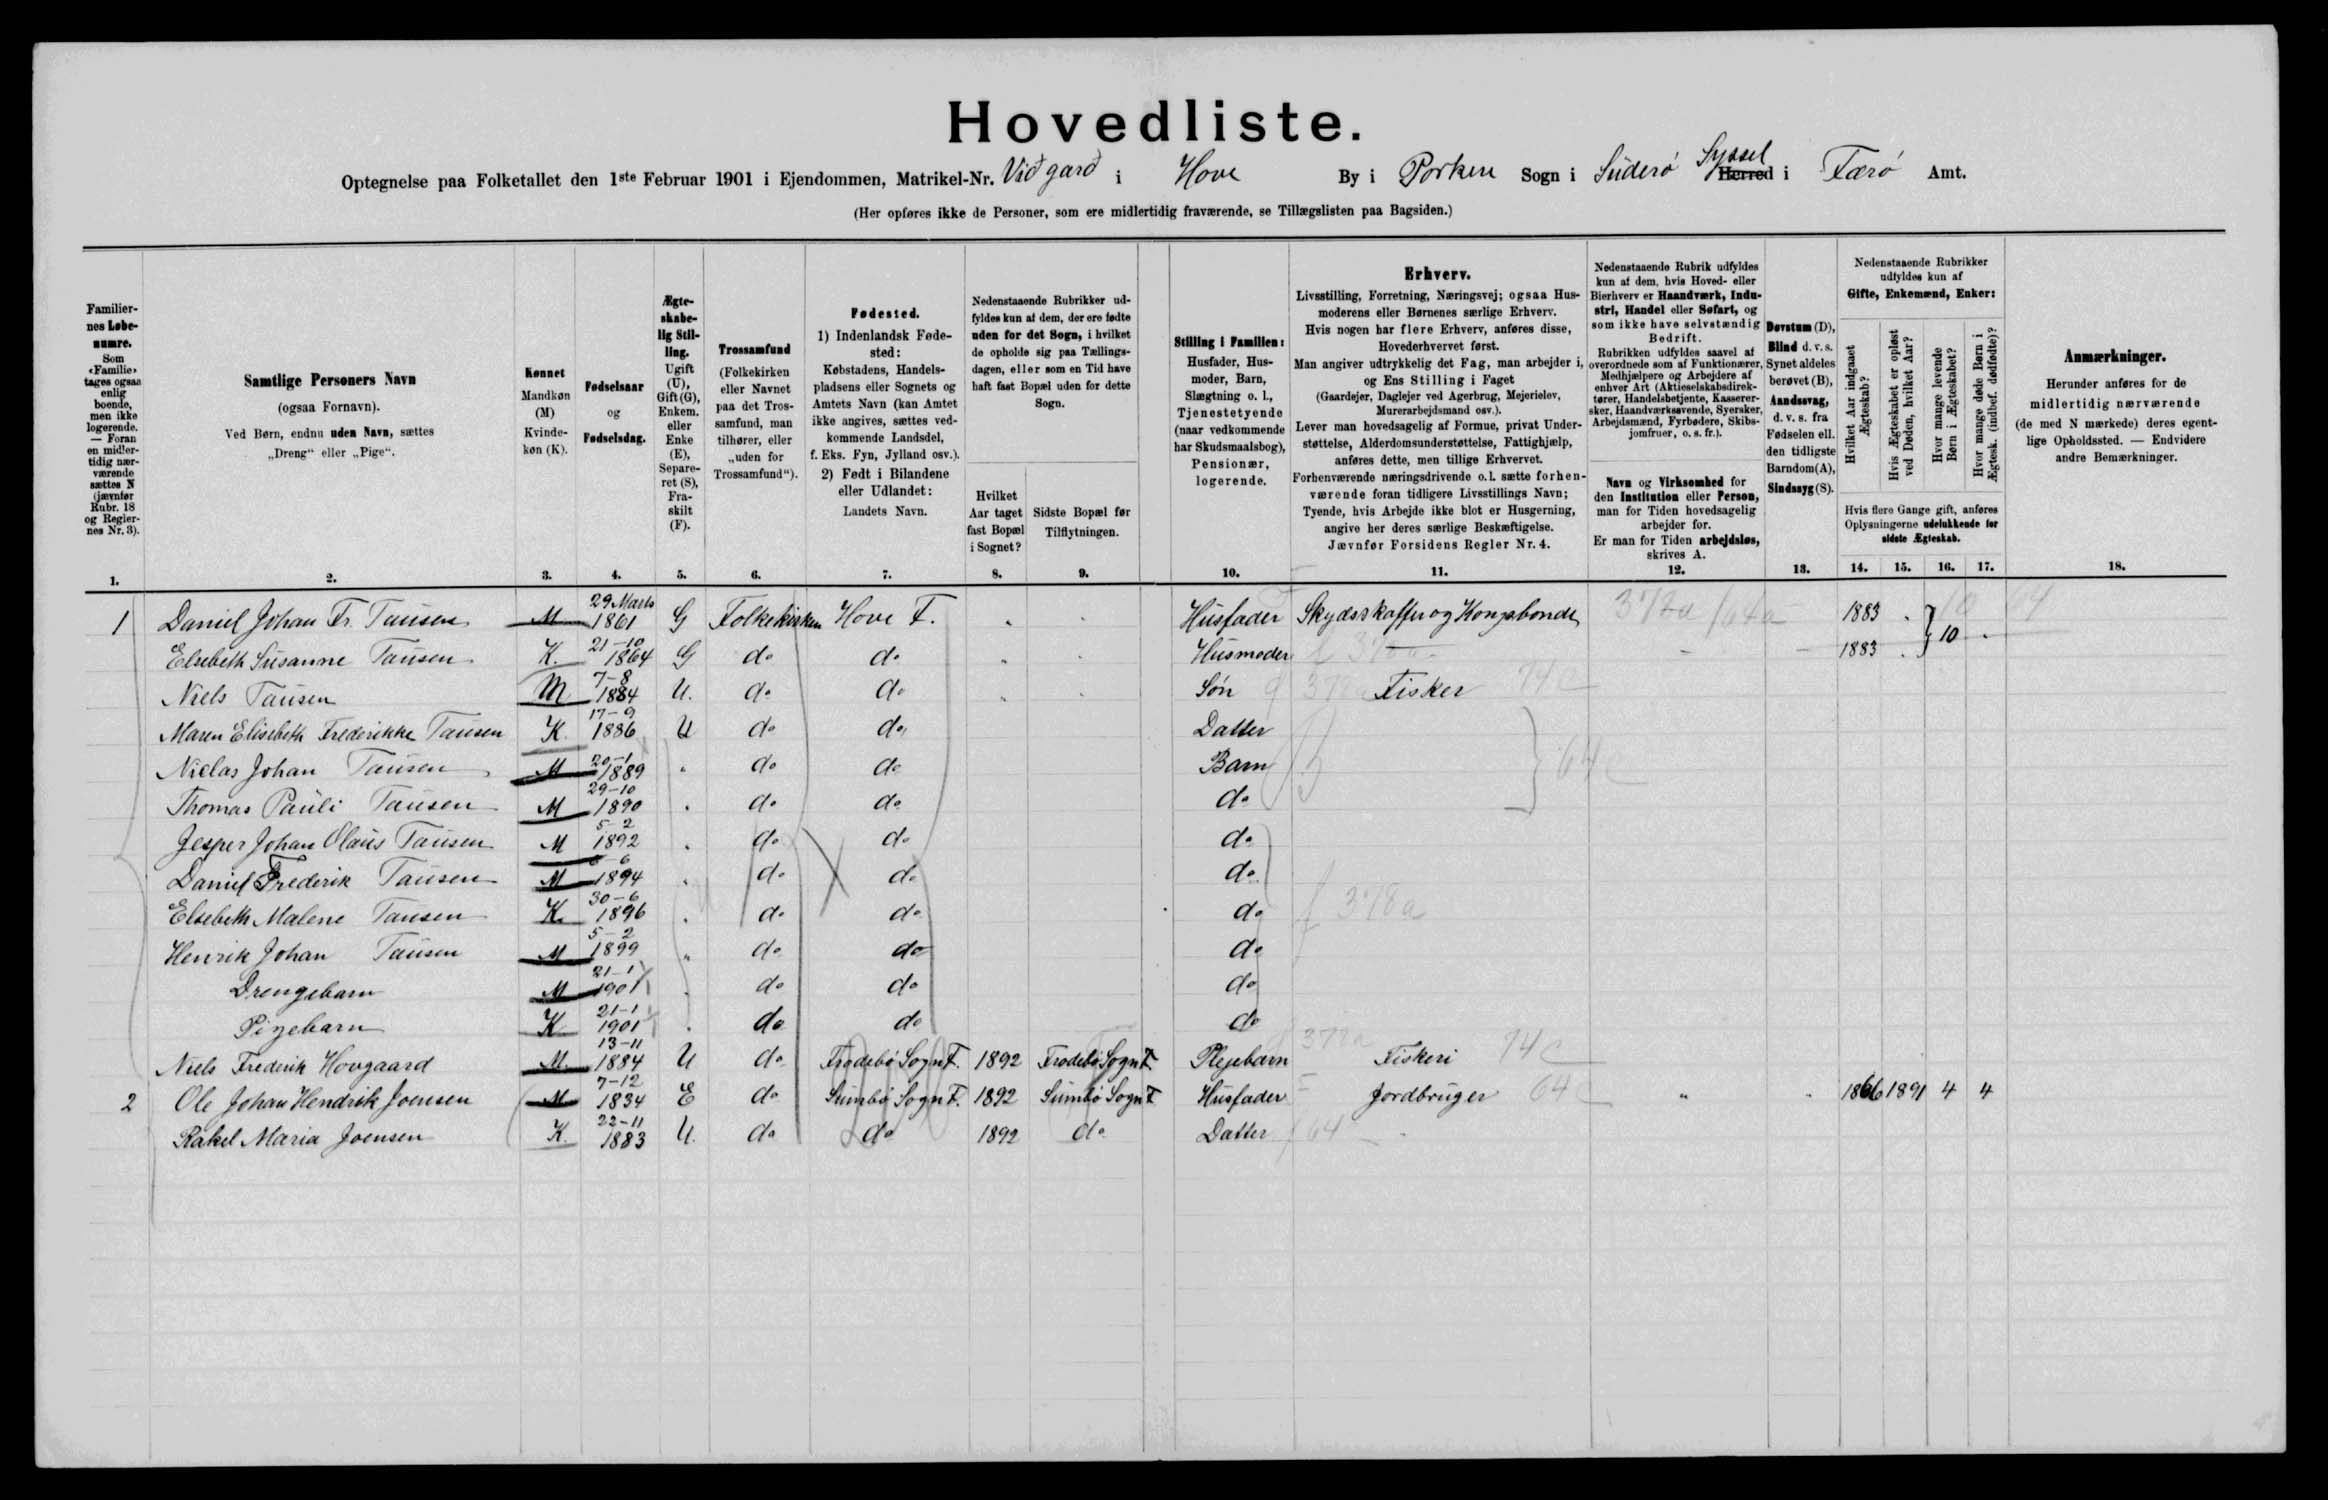 Hovedliste.
Optegnelse paa Folketallet den 1ste Februar 1901 i Ejendommen, Matrikel-Nr. Viðgarð i Hove By i Porkere Sogn i Süderø Syssel Herred i Færø Amt.
(Her opføres ikke de Personer, som ere midlertidig fraværende, se Tillægslisten paa Bagsiden.)
Familiernes Løbenumre. Som «Familie» tages ogsaa enlig boende, men ikke logerende. — Foran en midlertidig nærværende sættes N (jævnfør Rubr. 18 og Reglernes Nr. 3).
Samtlige Personers Navn
(ogsaa Fornavn).
Ved Børn, endnu uden Navn, sættes
„Dreng“ eller „Pige“.
Kønnet
Mandkøn (M)
Kvindekøn (K).
Fødselsaar
og
Fødselsdag.
Ægteskabelig Stilling. Ugift (U), Gift (G), Enkem. eller Enke (E), Separeret (S), Fraskilt (F).
Trossamfund
(Folkekirken eller Navnet paa det Trossamfund, man tilhører, eller „uden for Trossamfund“).
Fødested.
1) Indenlandsk Fødested:
Købstadens, Handelspladsens eller Sognets og Amtets Navn (kan Amtet ikke angives, sættes vedkommende Landsdel, f. Eks. Fyn, Jylland osv.).
2) Født i Bilandene eller Udlandet:
Landets Navn.
Nedenstaaende Rubrikker udfyldes kun af dem, der ere fødte uden for det Sogn, i hvilket de opholde sig paa Tællingsdagen, eller som en Tid have haft fast Bopæl uden for dette Sogn.
Hvilket Aar taget fast Bopæl i Sognet?
Sidste Bopæl før Tilflytningen.
Stilling i Familien:
Husfader, Husmoder, Barn, Slægtning o. l., Tjenestetyende (naar vedkommende har Skudsmaalsbog), Pensionær, logerende.
Erhverv.
Livsstilling, Forretning, Næringsvej; ogsaa Husmoderens eller Børnenes særlige Erhverv.
Hvis nogen har flere Erhverv, anføres disse, Hovederhvervet først.
Man angiver udtrykkelig det Fag, man arbejder i, og Ens Stilling i Faget
(Gaardejer, Daglejer ved Agerbrug, Mejerielev, Murerarbejdsmand osv.).
Lever man hovedsagelig af Formue, privat Understøttelse, Alderdomsunderstøttelse, Fattighjælp, anføres dette, men tillige Erhvervet.
Forhenværende næringsdrivende o. l. sætte forhenværende foran tidligere Livsstillings Navn;
Tyende, hvis Arbejde ikke blot er Husgerning, angive her deres særlige Beskæftigelse.
Jævnfør Forsidens Regler Nr. 4.
Nedenstaaende Rubrik udfyldes kun af dem, hvis Hoved- eller Bierhverv er Haandværk, Industri, Handel eller Søfart, og som ikke have selvstændig Bedrift.
Rubrikken udfyldes saavel af overordnede som af Funktionærer, Medhjælpere og Arbejdere af enhver Art (Aktieselskabsdirektører, Handelsbetjente, Kasserersker, Haandværkssvende, Syersker, Arbejdsmænd, Fyrbødere, Skibsjomfruer, o. s. fr.).
Navn og Virksomhed for den Institution eller Person, man for Tiden hovedsagelig arbejder for.
Er man for Tiden arbejdsløs, skrives A.
Døvstum (D), Blind d. v. s. Synet aldeles berøvet (B), Aandssvag, d. v. s. fra Fødselen ell. den tidligste Barndom (A), Sindssyg (S).
Nedenstaaende Rubrikker udfyldes kun af
Gifte, Enkemænd, Enker:
Hvilket Aar indgaaet Ægteskab?
Hvis Ægteskabet er opløst ved Døden, hvilket Aar?
Hvor mange levende Børn i Ægteskabet?
Hvor mange døde Børn i Ægtesk. (indbef. dødfødte)?
Hvis flere Gange gift, anføres Oplysningerne udelukkende for sidste Ægteskab.
Anmærkninger.
Herunder anføres for de midlertidig nærværende (de med N mærkede) deres egentlige Opholdssted. — Endvidere andre Bemærkninger.
1. 2. 3. 4. 5. 6. 7. 8. 9. 10. 11. 12. 13. 14. 15. 16. 17. 18.
1 Daniel Johan Fr. Tausen M 29 Marts 1861 G Folkekirken Hove F. Husfader Skydsskaffer og Kongsbonde 378a 64a 1883 10
Elsebeth Susanne Tausen K. 21-10 1864 G do do Husmoder 1883
Niels Tausen M 7-8 1884 U. do do Søn 378a Fisker 74c
Maren Elisebeth Frederikke Tausen K. 17-9 1886 U do do Datter
Niclas Johan Tausen M 20-1 1889 do do Barn 64c
Thomas Pauli Tausen M 29-10 1890 do do do
Jesper Johan Olaus Tausen M 5-2 1892 do do do
Daniel Frederik Tausen M 6-6 1894 do do do
Elsebeth Malene Tausen K. 30-6 1896 do do do f 378a
Henrik Johan Tausen M 5-2 1899 " do do do
Drengebarn M 21-1 1901 do do do
Pigebarn K 21-1 1901 do do do
Niels Frederik Hovgaard M. 13-11 1884 U do Frodebø Sogn F. 1892 Frodebø Sogn F. Plejebarn 378a Fiskeri 74c
2 Ole Johan Hendrik Joensen M 7-12 1834 E do Sumbø Sogn F. 1892 Sumbø Sogn F. Husfader Jordbruger 64c " 1866 1891 4 4
Rakel Maria Joensen K. 22-11 1883 U. do do 1892 do Datter f 64